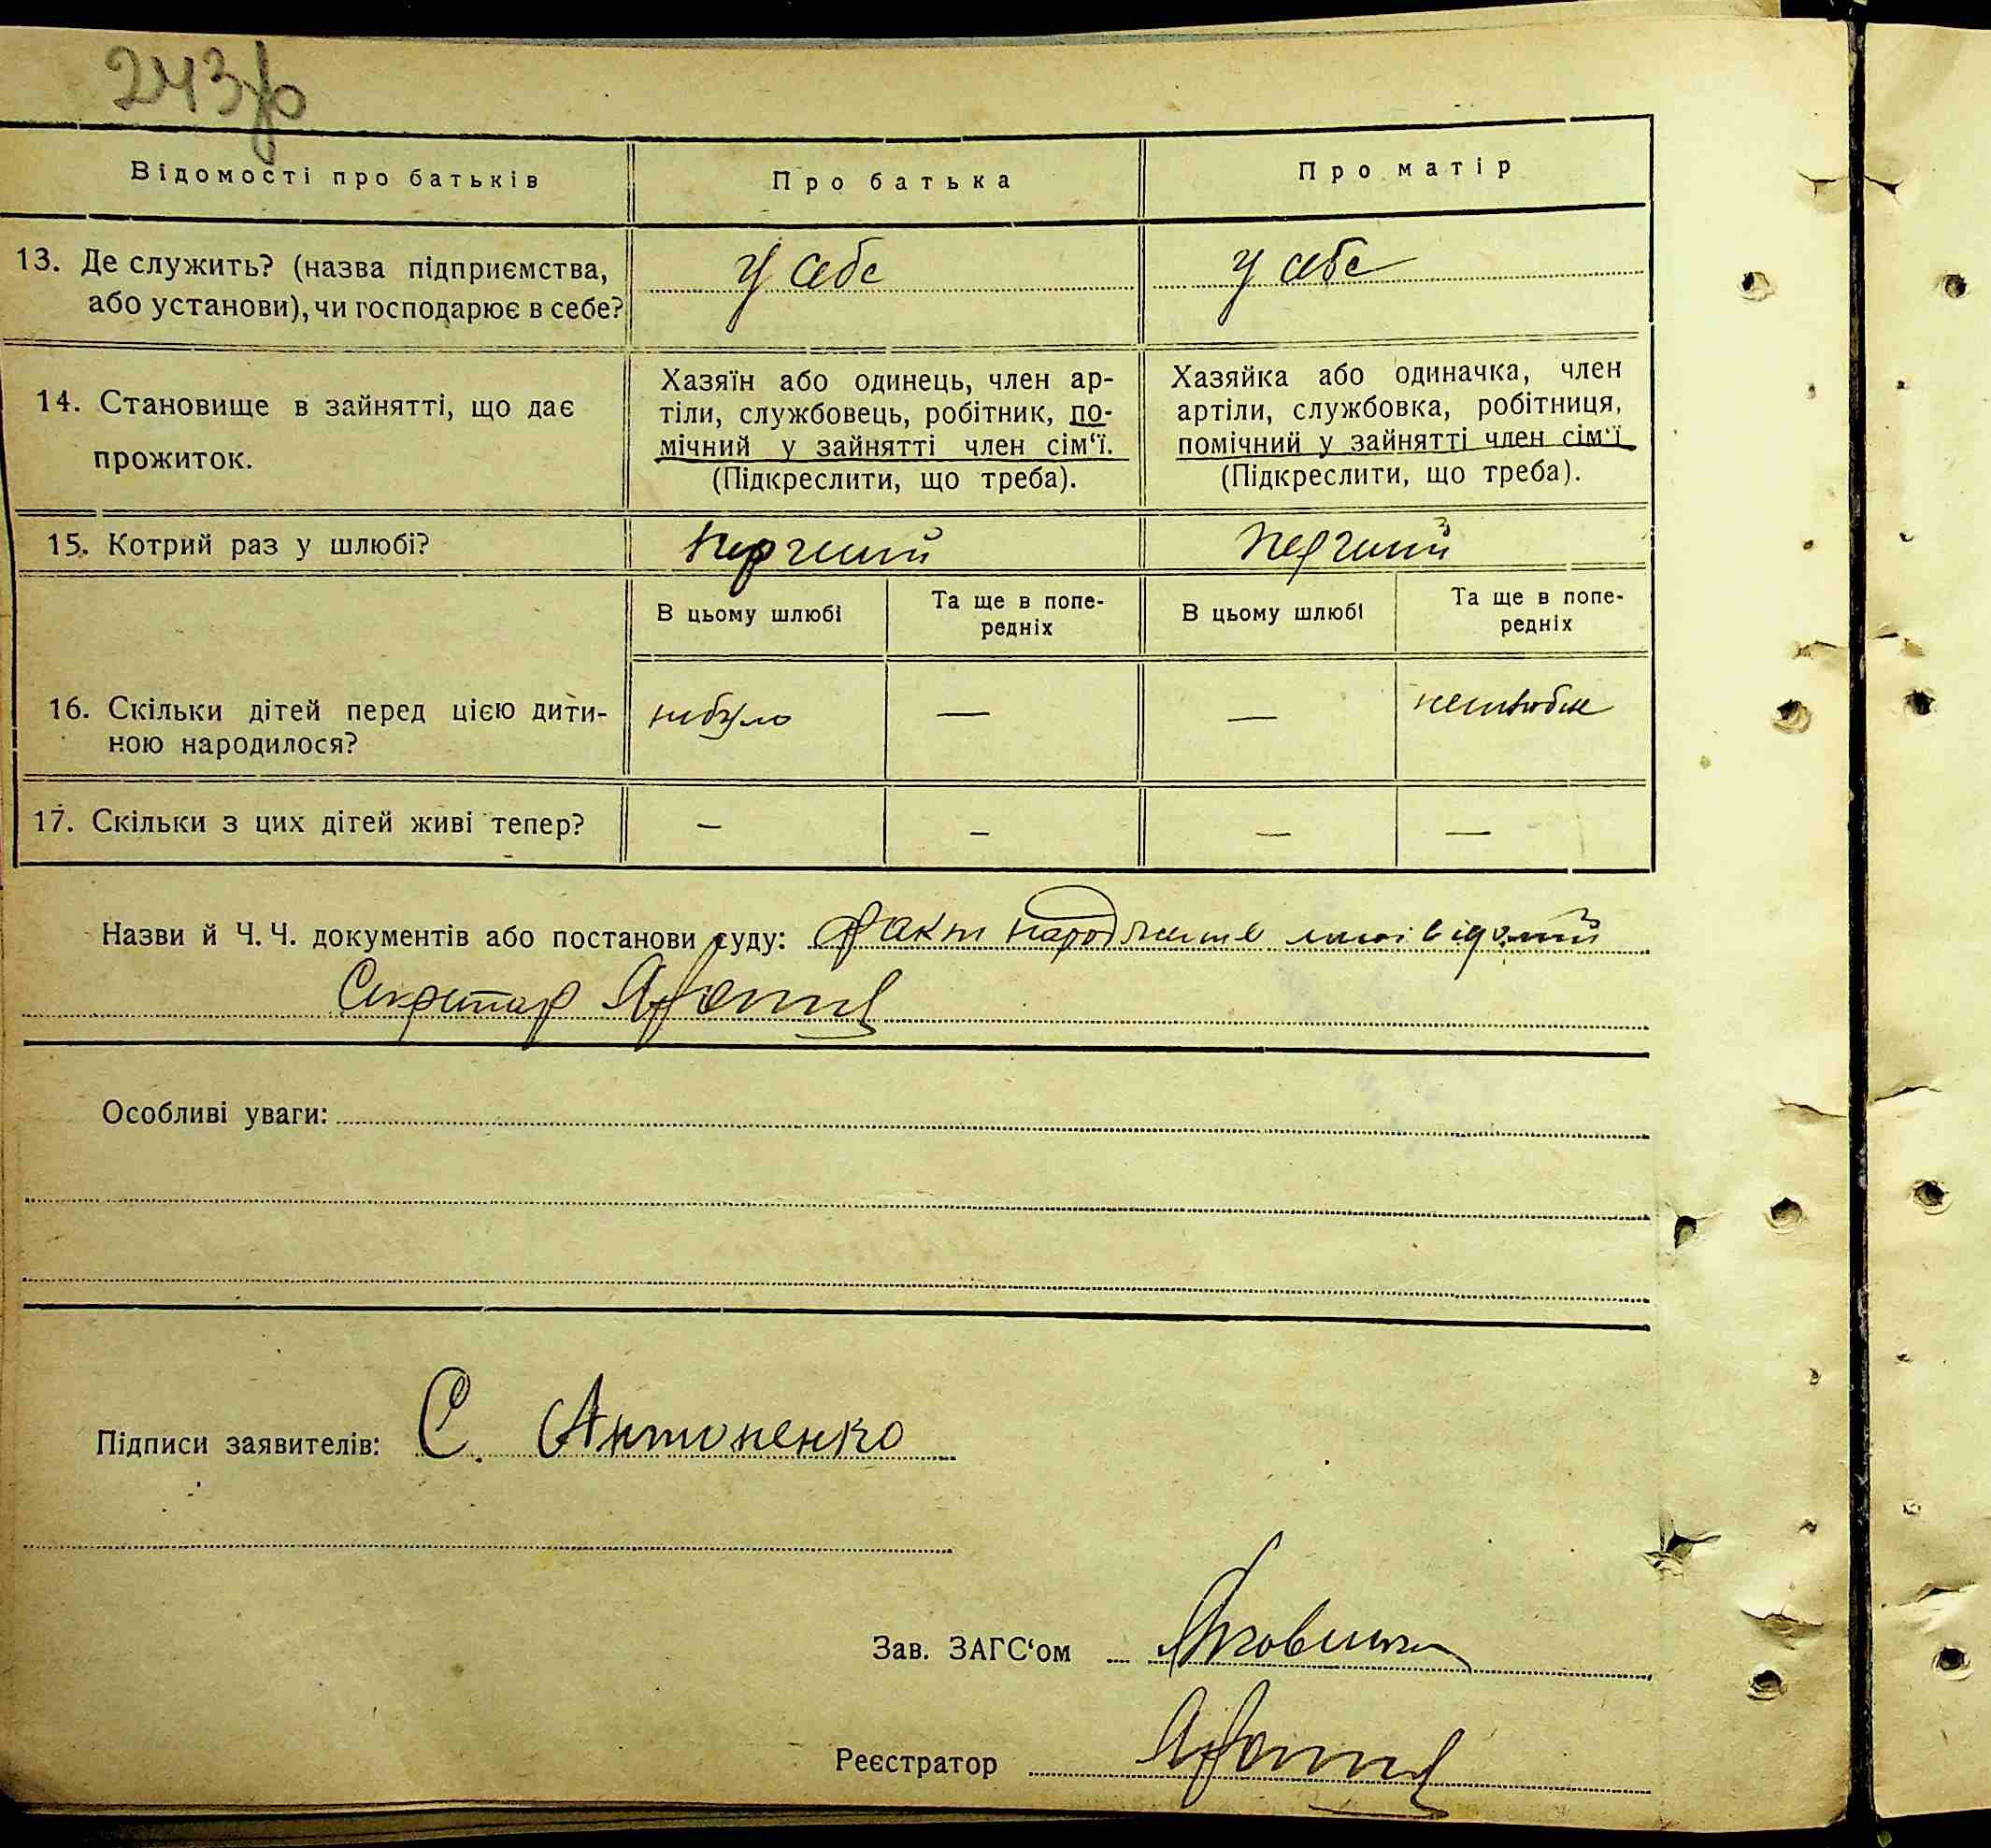 243
Відомості про батьків
Про батька
Про матір
13. Де служить? (назва підприємства,
або установи), чи господарює в себе?
У себе
У себе
14. Становище в зайнятті, що дає
прожиток.
Хазяїн або одинець, член ар-
тіли, службовець, робітник, по-
мічний у зайнятті член сім‘ї.
(Підкреслити, що треба).
Хазяйка або одиначка, член
артіли, службовка, робітниця,
помічний у зайнятті член сім‘ї
(Підкреслити, що треба).
15. Котрий раз у шлюбі?
перший
перший
В цьому шлюбі
Та ще в попе-
редніх
В цьому шлюбі
Та ще в попе-
редніх
16. Скільки дітей перед цією дити-
ною народилося?
небуло
—
—
17. Скільки з цих дітей живі тепер?
—
—
—
—
Назви й Ч. Ч. документів або постанови суду: факт народження мені відомий
Секретар
Особливі уваги:
Підписи заявителів: С. Антоненко
Зав. ЗАГС‘ом
Реєстратор